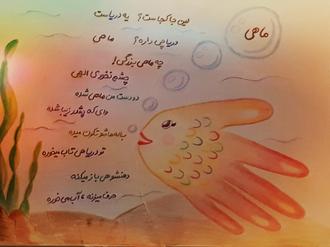 ماهی
اینجا کجاست؟ یه دریاست
دریا چی داره؟ ماهی
چه ماهی بزرگی!
چشم نخوری الهی
دو دست من ماهی شده
وای که چقدر زیبا شده
باله هاشو تکون میده
تو دریا هی تاب میخوره
دهنشو هی باز میکنه
حرف میزنه، آب می خوره